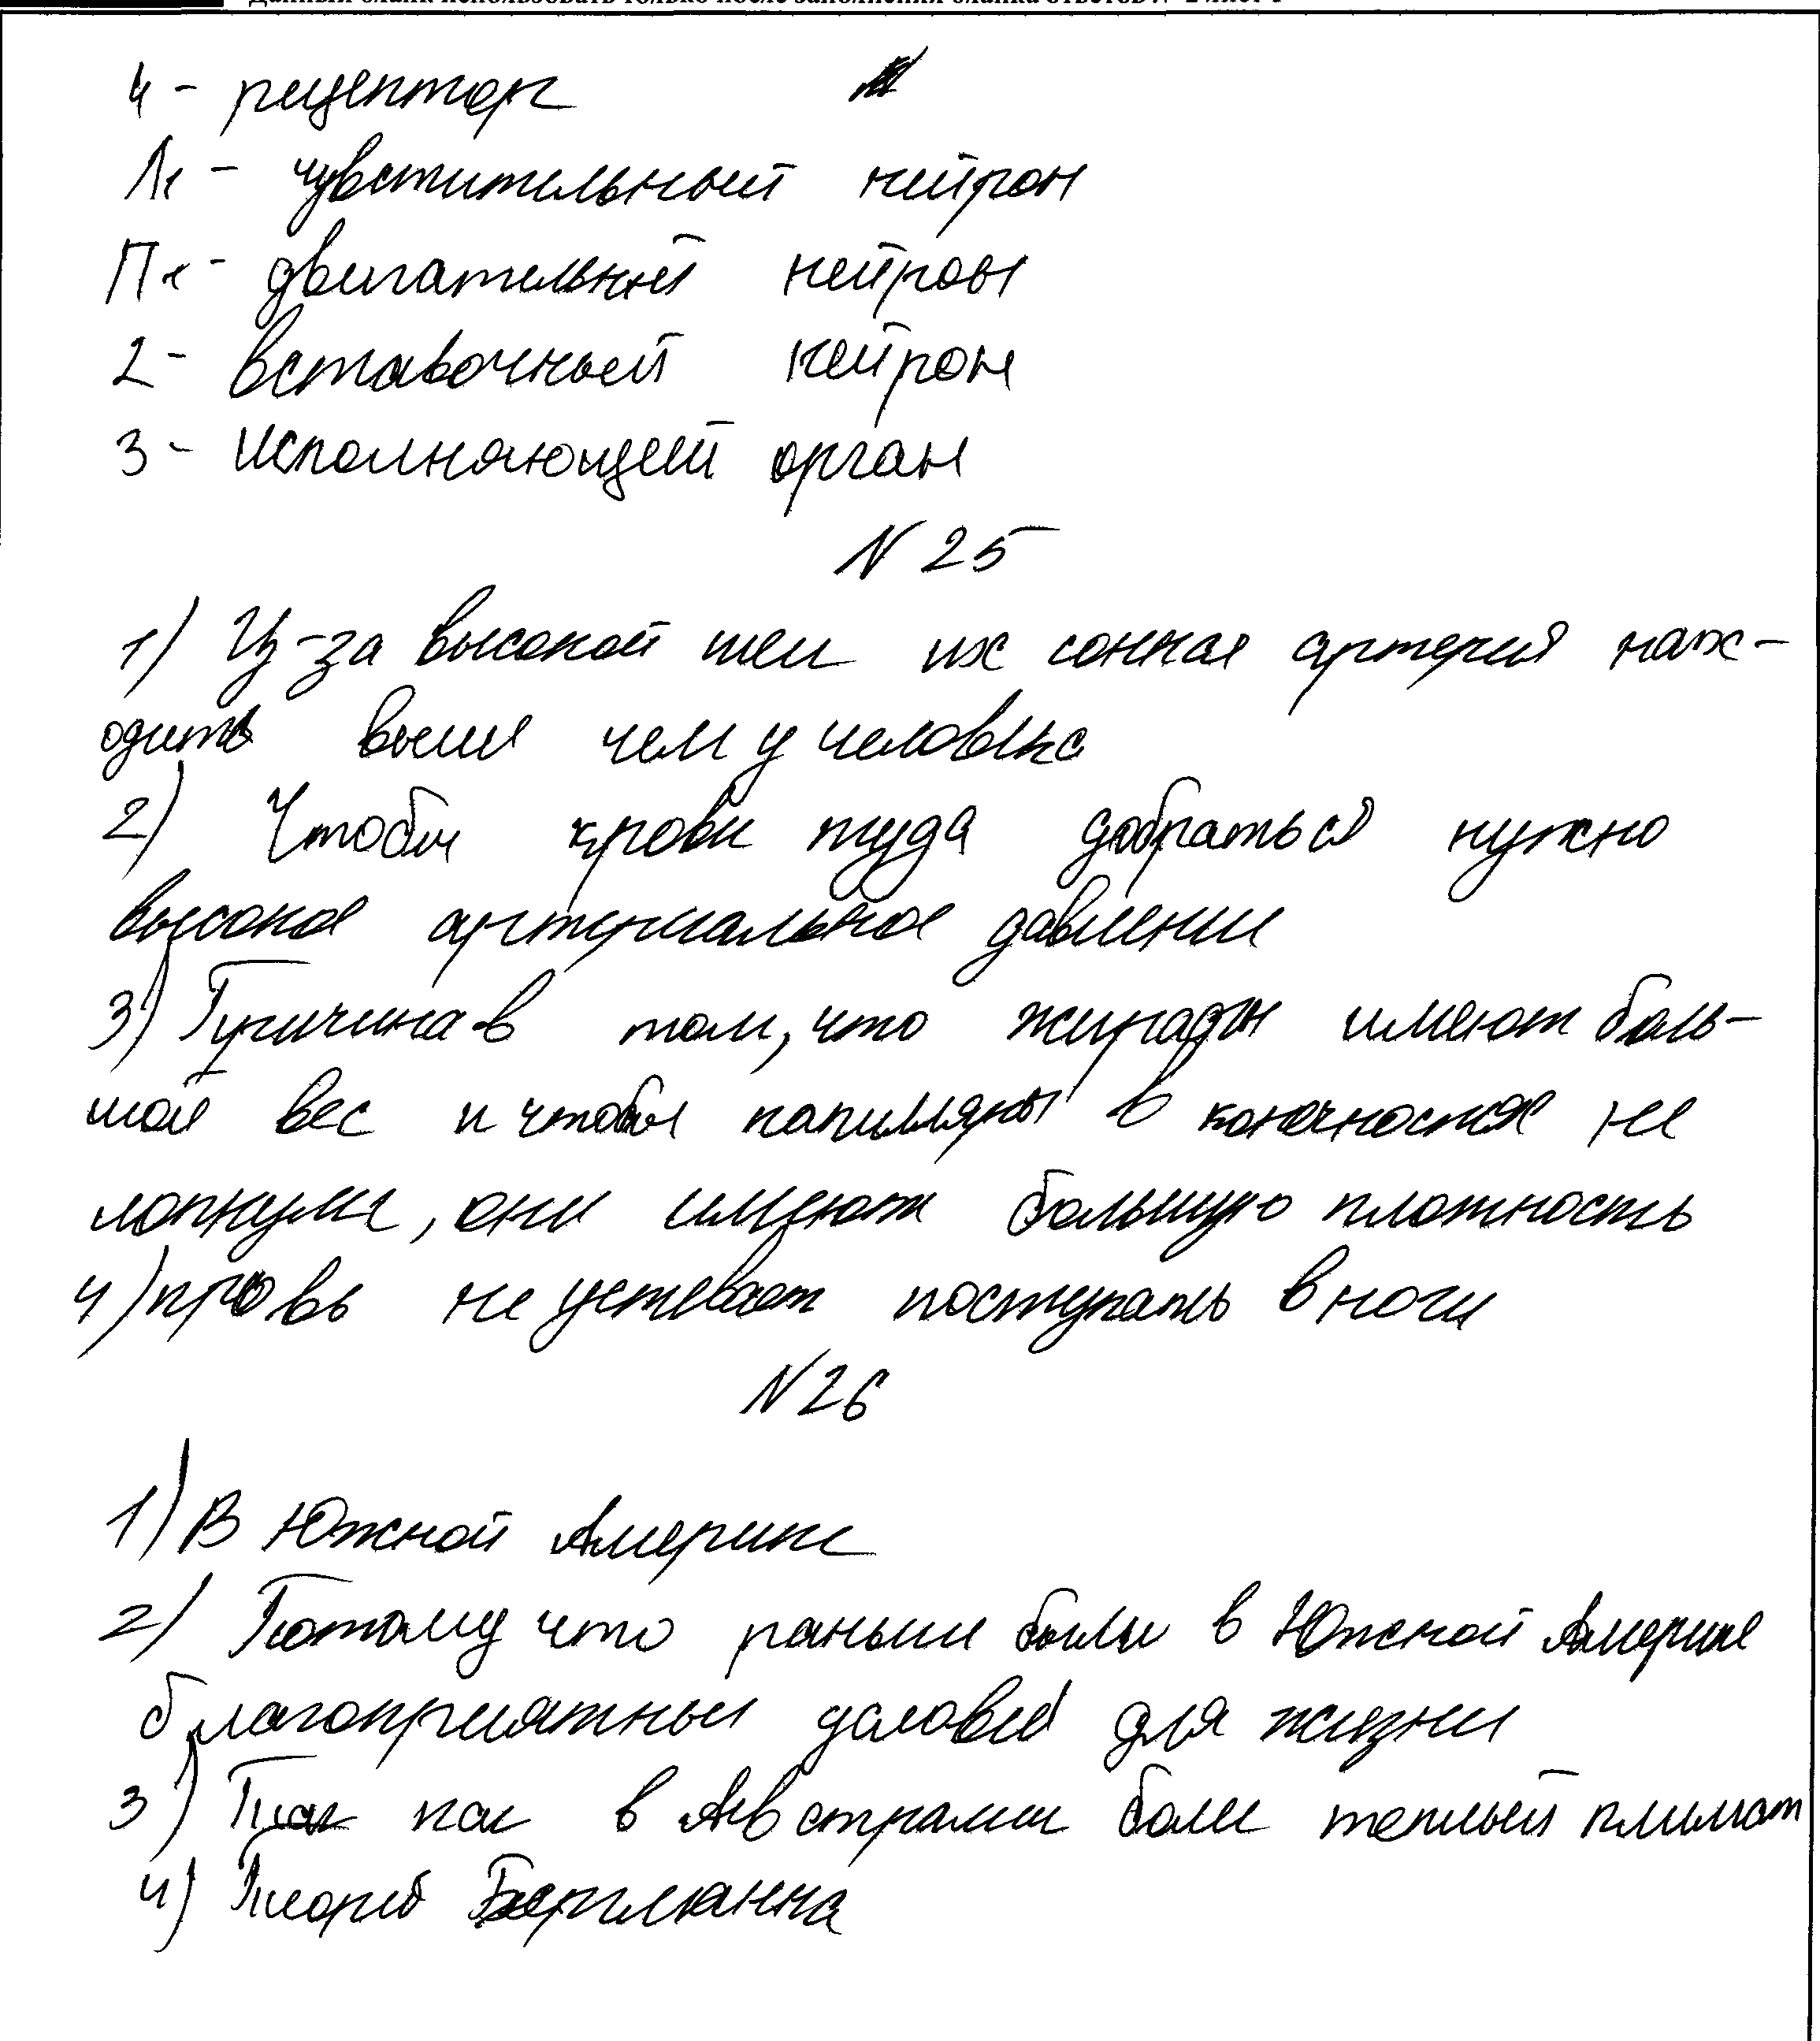 4 - рецептор
1 - чувствительный нейрон
1 - двигательный нейрон
2 - вставочный нейрон
3 - Исполняющей орган
N 25
1) Из-за высокой шеи их сонная артерия нах-
одить выше чем у человека
2) Чтобы крови туда добраться нужно
высокое артериальное давление
3) Причина в том, что жирафы имеют боль-
шой вес и чтобы капилляры в конечностях не
лопнули, они имеют большую плотность
4) кровь не успевает поступать в ноги
N 26
1) В Южной Америке
2) Потому что раньше были в Южной Америке
благоприятные условия для жизни
3) Так как в Австралии боле теплый климат
4) Теория Бергманна